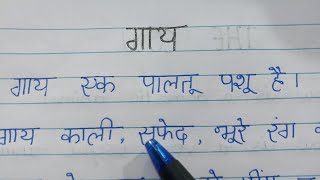 गाय
गाय एक पालतू पशू है।
गाय काली, सफेद, भूरे रंग